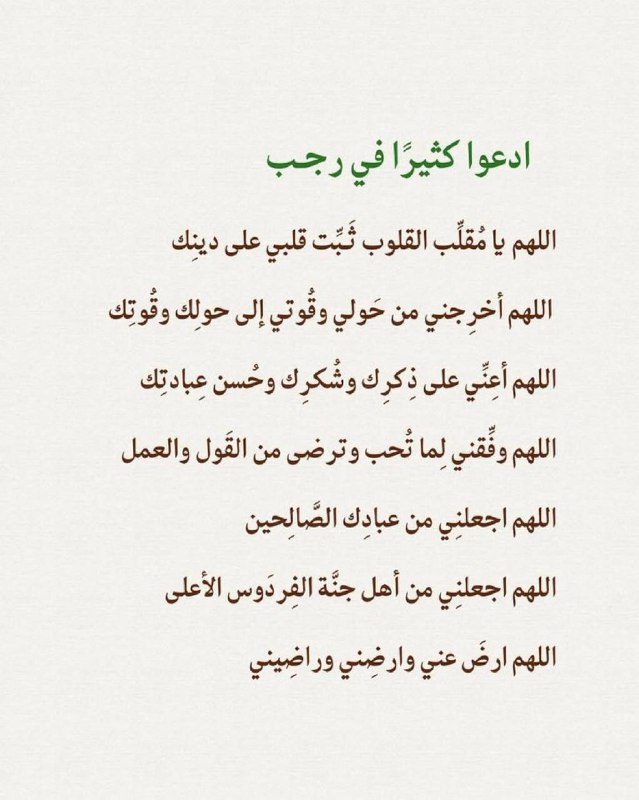 ادعوا كثيرًا في رجب
اللهم يا مُقلِّب القلوب ثَبِّت قلبي على دينِك
اللهم أخرِجني من حَولي وقُوتي إلى حولِك وقُوتِك
اللهم أعِنِّي على ذِكرِك وشُكرِك وحُسن عِبادتِك
اللهم وفِّقني لِما تُحب وترضى من القَول والعمل
اللهم اجعلنِي من عبادِك الصَّالِحين
اللهم اجعلنِي من أهل جنَّة الفِردَوس الأعلى
اللهم ارضَ عني وارضِني وراضِيني